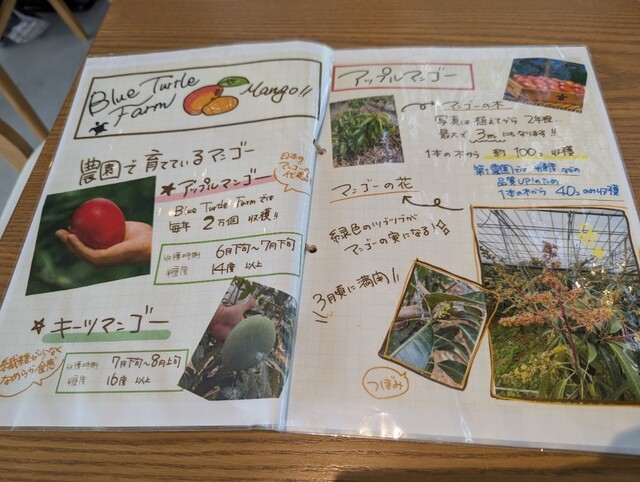 Blue Turtle
Farm
Mango!!
農園で育てているマンゴー
日本の
マンゴー
代表!
★アップルマンゴー
Blue Turtle Farmでは
毎年 2万個 収穫!!
収穫時期 6月下旬〜7月下旬
糖度 14度 以上
★キーツマンゴー
繊維がなく
なめらか食感
収穫時期 7月下旬〜8月上旬
糖度 16度 以上
アップルマンゴー
マンゴーの木
写真は植えてから2年程
最大で3mにもなります!!
1本の木から 約100コ収穫
品質UP!のため
1本の木から 40コのみ収穫
マンゴーの花
緑色のツブツブが
マンゴーの実になる!
3月頃に満開!!
つぼみ